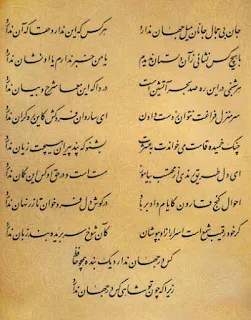 جان بی جمال جانان میل جهان ندارد هر کس که این ندارد حقا که آن ندارد
با هیچ کس نشانی زان دلستان ندیدم یا من خبر ندارم یا او نشان ندارد
هر شبنمی در این ره صد بحر آتشین است دردا که این معما شرح و بیان ندارد
سرمنزل فراغت نتوان ز دست دادن ای ساروان فروکش کاین ره کران ندارد
چنگ خمیده قامت می‌خواندت به عشرت بشنو که پند پیران هیچت زیان ندارد
ای دل طریق رندی از محتسب بیاموز مست است و در حق او کس این گمان ندارد
احوال گنج قارون کایام داد بر باد در گوش دل فرو خوان تا زر نهان ندارد
گر خود رقیب شمع است اسرار از او بپوشان کان شوخ سر بریده بند زبان ندارد
کس در جهان ندارد یک بنده همچو حافظ
زیرا که چون تو شاهی کس در جهان ندارد